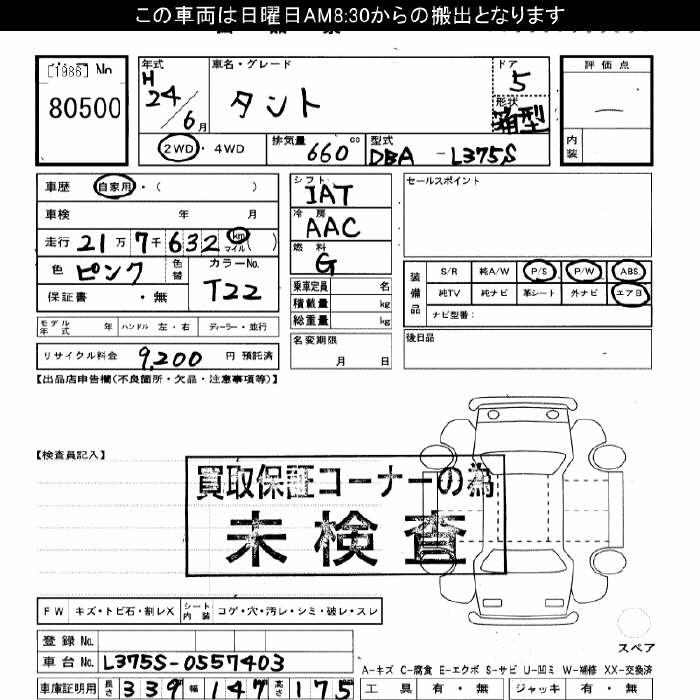 この車両は日曜日AM8:30からの搬出となります
[1986] No
80500
年式 H24/6月
車名・グレード タント
ドア 5
形状 箱型
評価点 —
内装
2WD・4WD
排気量 660cc
型式 DBA-L375S
車歴 自家用・( )
車検 年 月
走行 21万7千632 km マイル ( )
色 ピンク 色替 カラーNo. T22
保証書 ・無
モデル年式 年 ハンドル 左・右 ディーラー・並行
リサイクル料金 9,200 円 預託済
シフト IAT
冷房 AAC
燃料 G
乗車定員 名
積載量 kg
総重量 kg
名変期限 月 日
セールスポイント
装備品 S/R 純A/W P/S P/W ABS
純TV 純ナビ 革シート 外ナビ エアB
ナビ型番:
後日品
【出品店申告欄(不良箇所・欠品・注意事項等)】
【検査員記入】
買取保証コーナーの為
未検査
FW キズ・トビ石・割レX シート内装 コゲ・穴・汚レ・シミ・破レ・スレ
登録No.
車台No. L375S-0557403
車庫証明用 長さ 339 幅 147 高さ 175
スペア
A-キズ C-腐食 E-エクボ S-サビ U-凹ミ W-補修 XX-交換済
工具 有・無 ジャッキ 有・無